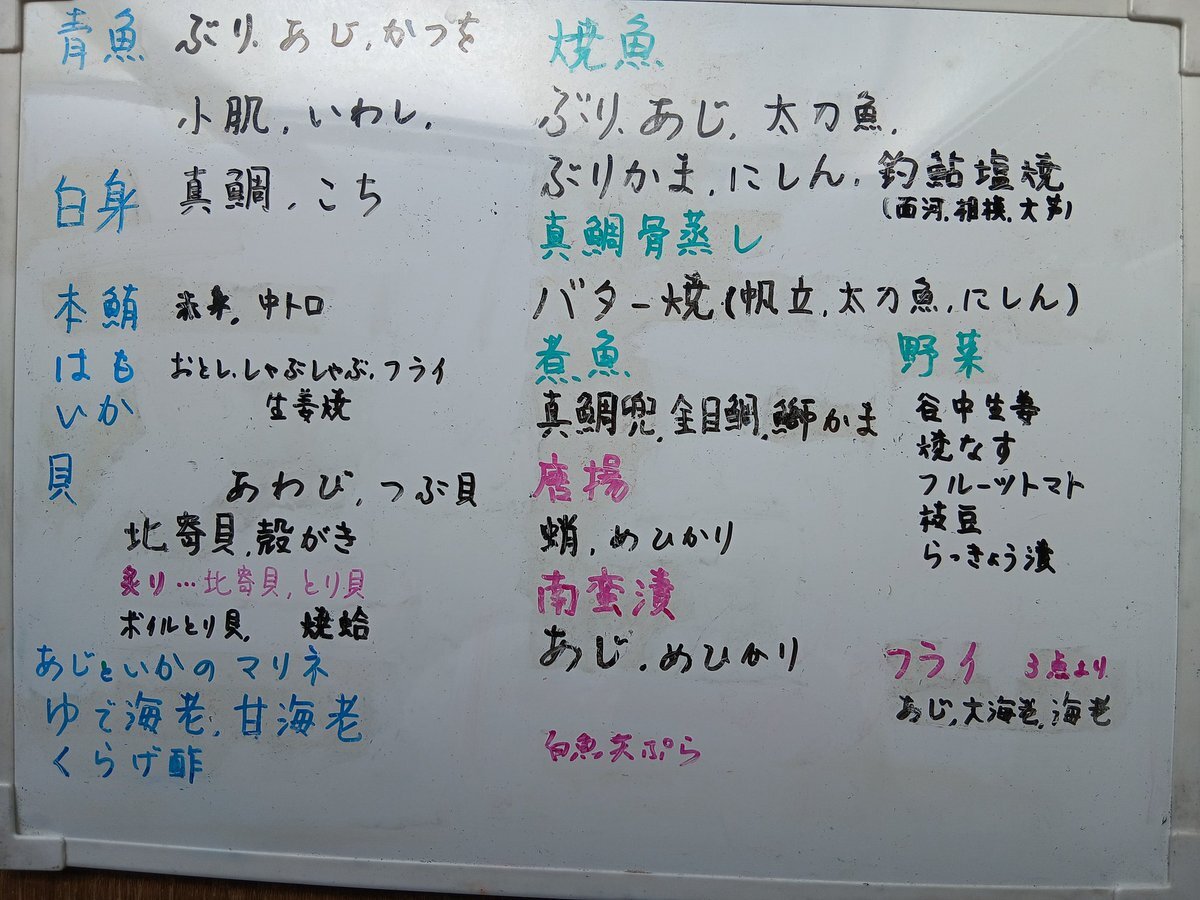 青魚 ぶり、あじ、かつを
小肌、いわし、
白身 真鯛、こち
本鮪 赤身、中トロ
はも おとし、しゃぶしゃぶ、フライ
いか 生姜焼
貝 あわび、つぶ貝
北寄貝、殻がき
炙り…北寄貝、とり貝
ボイルとり貝、 焼蛤
あじといかのマリネ
ゆで海老、甘海老
くらげ酢
焼魚
ぶり、あじ、太刀魚、
ぶりかま、にしん、釣鮎塩焼
(面河、相模、大芦)
真鯛骨蒸し
バター焼(帆立、太刀魚、にしん)
煮魚
真鯛兜、金目鯛、鰤かま
唐揚
蛸、めひかり
南蛮漬
あじ、めひかり
白魚天ぷら
野菜
谷中生姜
焼なす
フルーツトマト
枝豆
らっきょう漬
フライ 3点より
あじ、大海老、海老